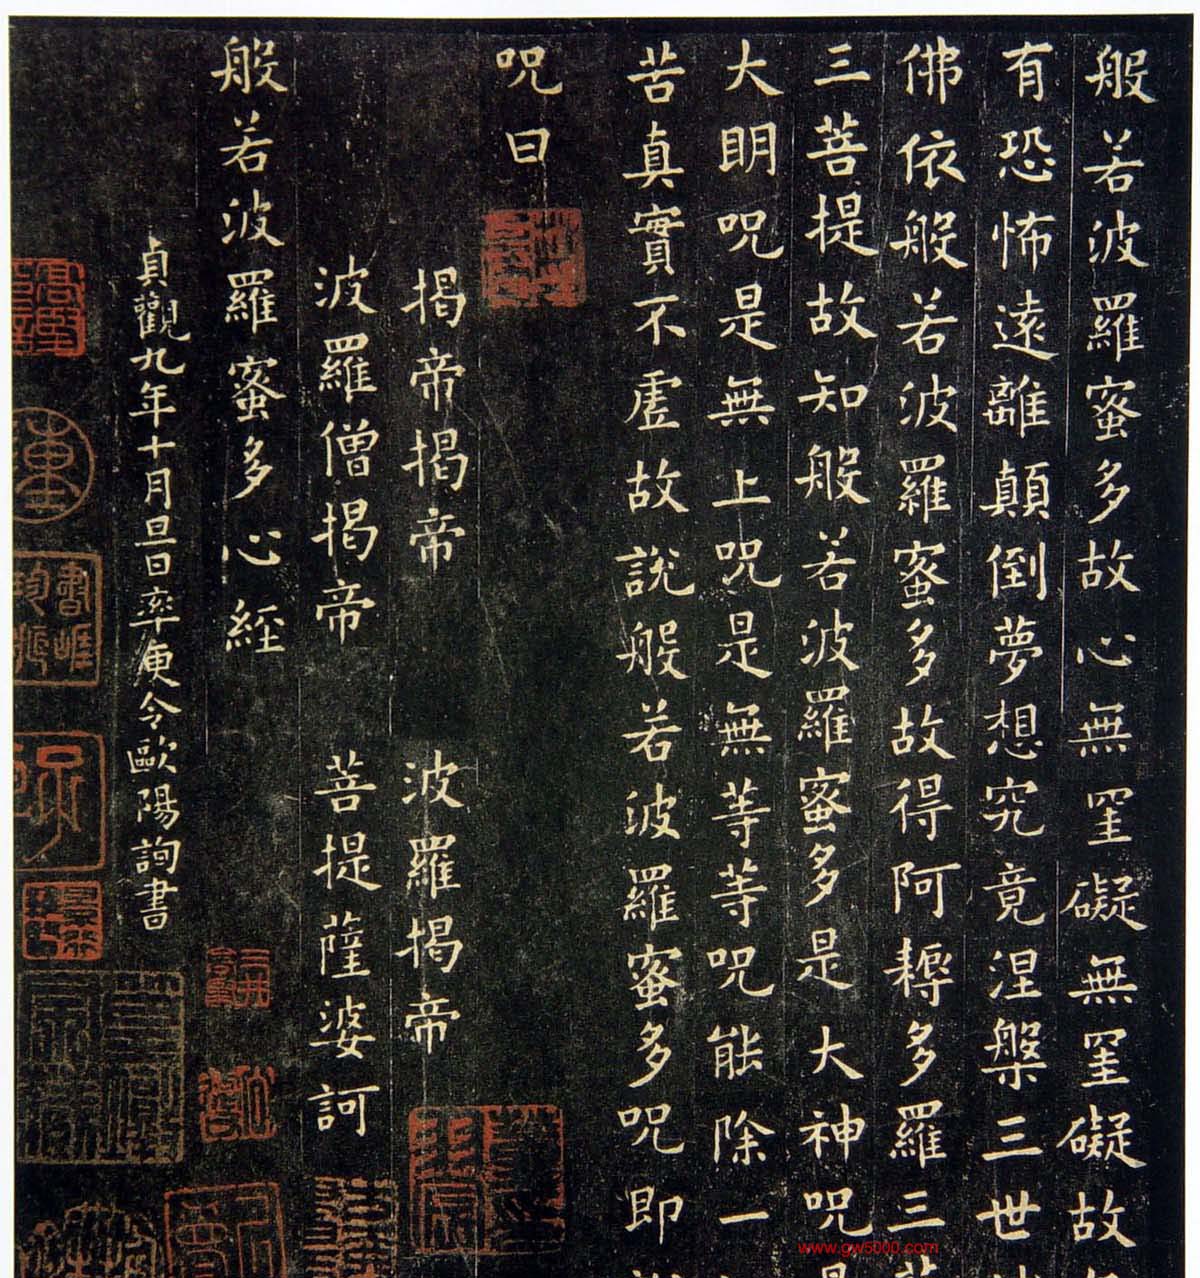 般若波羅蜜多故心無罣礙無罣礙故
有恐怖遠離顛倒夢想究竟涅槃三世
佛依般若波羅蜜多故得阿耨多羅三
三菩提故知般若波羅蜜多是大神呪
大明呪是無上呪是無等等呪能除一
苦真實不虛故說般若波羅蜜多呪即
呪曰
揭帝揭帝 波羅揭帝
波羅僧揭帝 菩提薩婆訶
般若波羅蜜多心經
貞觀九年十月旦日率更令歐陽詢書
www.gw5000.com